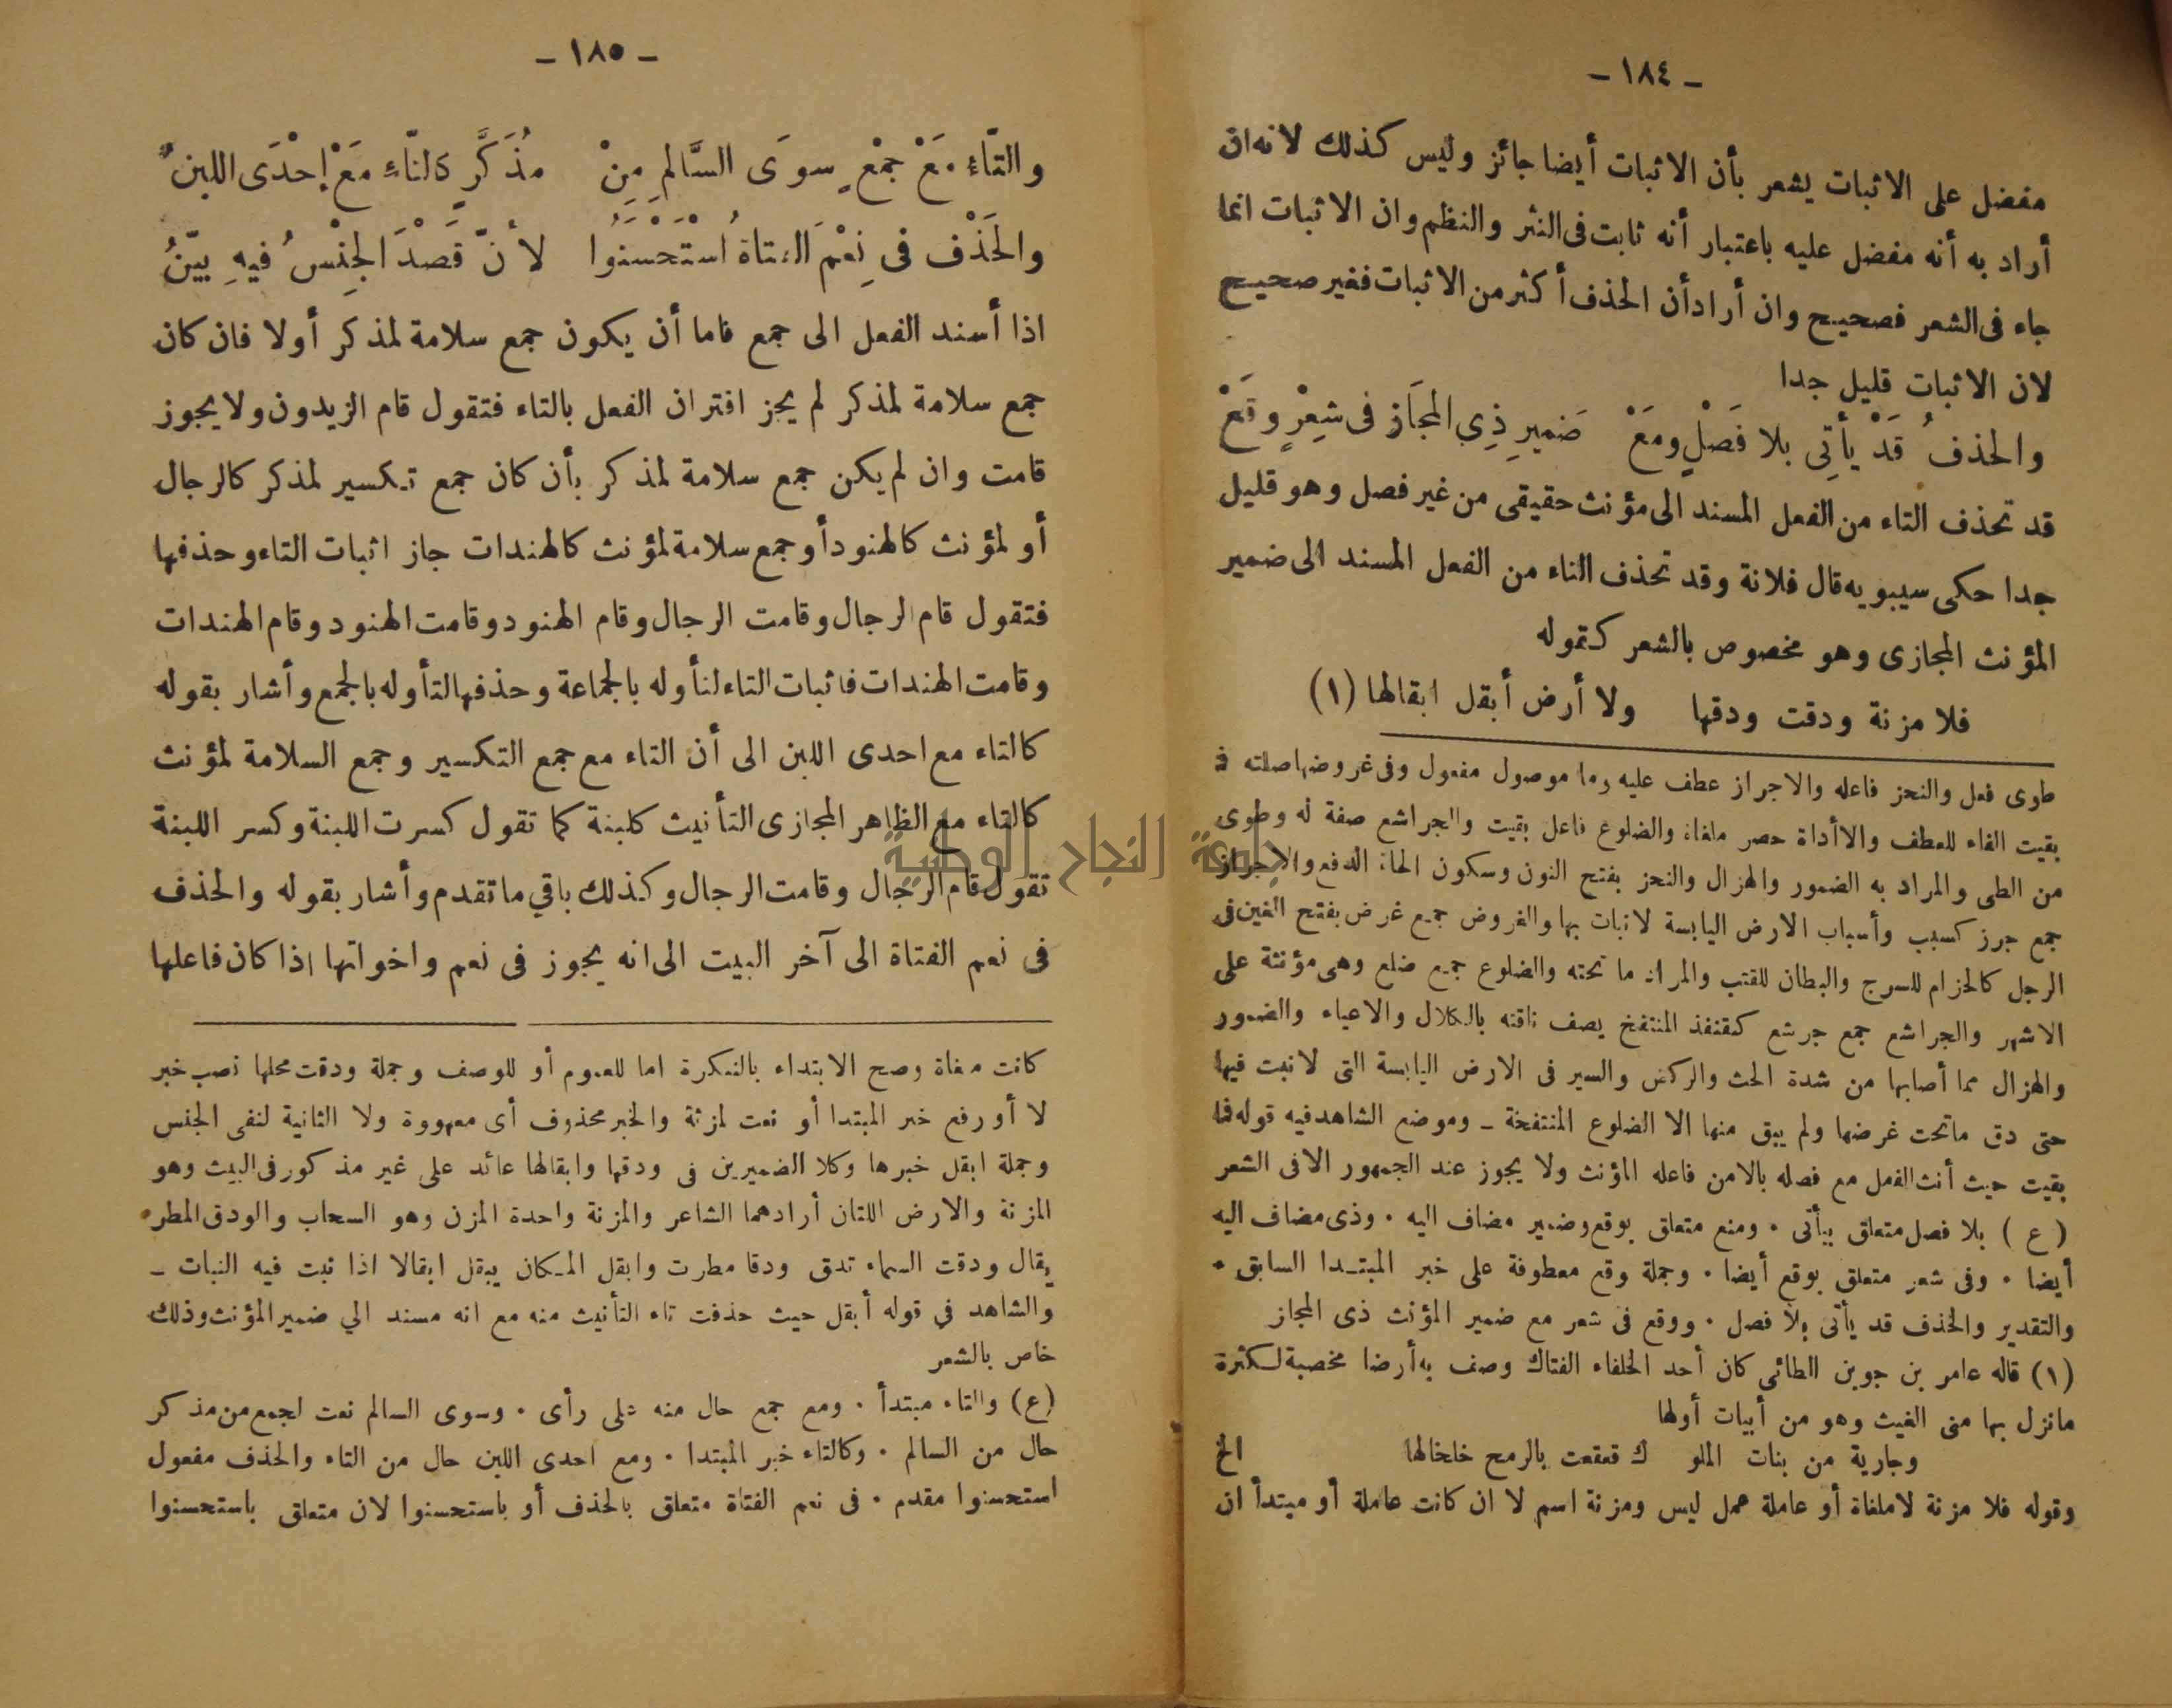 - ١٨٤ -
مفضل على الاثبات يشعر بأن الاثبات أيضا جائز وليس كذلك لانه ان
أراد به أنه مفضل عليه باعتبار أنه ثابت فى النثر والنظم وان الاثبات انما
جاء فى الشعر فصحيح وان أراد أن الحذف أكثر من الاثبات فغير صحيح
لان الاثبات قليل جدا
والحذفُ قَدْ يأتِى بلا فَصْلٍ ومَعْ ضَمِيرِ ذِي المجَازِ فى شِعْرٍ وقَعْ
قد تحذف التاء من الفعل المسند الى مؤنث حقيقى من غير فصل وهو قليل
جدا حكى سيبويه قال فلانة وقد تحذف التاء من الفعل المسند الى ضمير
المؤنث المجازى وهو مخصوص بالشعر كقوله
فلا مزنة ودقت ودقها ولا أرض أبقل ابقالها (١)
طوى فعل والنحز فاعله والاجراز عطف عليه وما موصول مفعول وفى غروضها صلته فما
بقيت الفاء للعطف والا أداة حصر ملغاة والضلوع فاعل بقيت والجراشع صفة له وطوى
من الطى والمراد به الضمور والهزال والنحز بفتح النون وسكون الحاء الدفع والاجراز
جمع جرز كسبب وأسباب الارض اليابسة لا نبات بها والغروض جمع غرض بفتح الغين فى
الرجل كالحزام للسرج والبطان للقتب والمراد ما تحته والضلوع جمع ضلع وهى مؤنثة على
الاشهر والجراشع جمع جرشع كقنفذ المنتفخ يصف ناقته بالكلال والاعياء والضمور
والهزال مما أصابها من شدة الحث والركض والسير فى الارض اليابسة التى لا نبت فيها
حتى دق ماتحت غرضها ولم يبق منها الا الضلوع المنتفخة - وموضع الشاهد فيه قوله فما
بقيت حيث أنث الفعل مع فصله بالا من فاعله المؤنث ولا يجوز عند الجمهور الا فى الشعر
( ع ) بلا فصل متعلق بيأتى . ومنع متعلق بوقع وضمير مضاف اليه . وذى مضاف اليه
أيضا . وفى شعر متعلق بوقع أيضا . وجملة وقع معطوفة على خبر المبتدا السابق .
والتقدير والحذف قد يأتى بلا فصل . ووقع فى شعر مع ضمير المؤنث ذى المجاز
(١) قاله عامر بن جوين الطائى كان أحد الخلفاء الفتاك وصف به أرضا مخصبة لكثرة
مانزل بها من الغيث وهو من أبيات أولها
وجارية من بنات الملو ك قعقعت بالرمح خلخالها الخ
وقوله فلا مزنة لا ملغاة أو عاملة عمل ليس ومزنة اسم لا ان كانت عاملة أو مبتدأ ان
- ١٨٥ -
والتّاءِ مَعْ جمْعٍ سوَى السَّالِمِ مِنْ مُذَكَّرٍ كالتّاءِ مَعْ إحْدَى اللبنْ
والحَذْف فى نِعْمَ الفتاةُ اسْتَحْسَنُوا لأنّ قَصْدَ الجِنْسِ فيهِ بيّنُ
اذا أسند الفعل الى جمع فاما أن يكون جمع سلامة لمذكر أولا فان كان
جمع سلامة لمذكر لم يجز اقتران الفعل بالتاء فتقول قام الزيدون ولا يجوز
قامت وان لم يكن جمع سلامة لمذكر بأن كان جمع تكسير لمذكر كالرجال
أو لمؤنث كالهنود أو جمع سلامة لمؤنث كالهندات جاز اثبات التاء وحذفها
فتقول قام الرجال وقامت الرجال وقام الهنود وقامت الهنود وقام الهندات
وقامت الهندات فاثبات التاء لتأوله بالجماعة وحذفها لتأوله بالجمع وأشار بقوله
كالتاء مع احدى اللبن الى أن التاء مع جمع التكسير وجمع السلامة لمؤنث
كالتاء مع الظاهر المجازى التأنيث كلبنة كما تقول كسرت اللبنة وكسر اللبنة
تقول قام الرجال وقامت الرجال وكذلك باقي ما تقدم وأشار بقوله والحذف
فى نعم الفتاة الى آخر البيت الى انه يجوز فى نعم واخواتها اذا كان فاعلها
كانت مغاة وصح الابتداء بالنكرة اما للعموم أو للوصف وجملة ودقت محلها نصب خبر
لا أو رفع خبر المبتدا أو نعت لمزنة والخبر محذوف أى معهووة ولا الثانية لنفى الجنس
وجملة ابقل خبرها وكلا الضميرين فى ودقها وابقالها عائد على غير مذكور فى البيت وهو
المزنة والارض اللتان أرادهما الشاعر والمزنة واحدة المزن وهو السحاب والودق المطر
يقال ودقت السماء تدق ودقا مطرت وابقل المكان يبقل ابقالا اذا نبت فيه النبات -
والشاهد في قوله أبقل حيث حذفت تاء التأنيث منه مع انه مسند الي ضمير المؤنث وذلك
خاص بالشعر
(ع) والتاء مبتدأ . ومع جمع حال منه على رأى . وسوى السالم نعت لجمع من مذكر
حال من السالم . وكالتاء خبر المبتدا . ومع احدى اللبن حال من التاء والحذف مفعول
استحسنوا مقدم . فى نعم الفتاة متعلق بالحذف أو باستحسنوا لان متعلق باستحسنوا
جامعة النجاح الوطنية